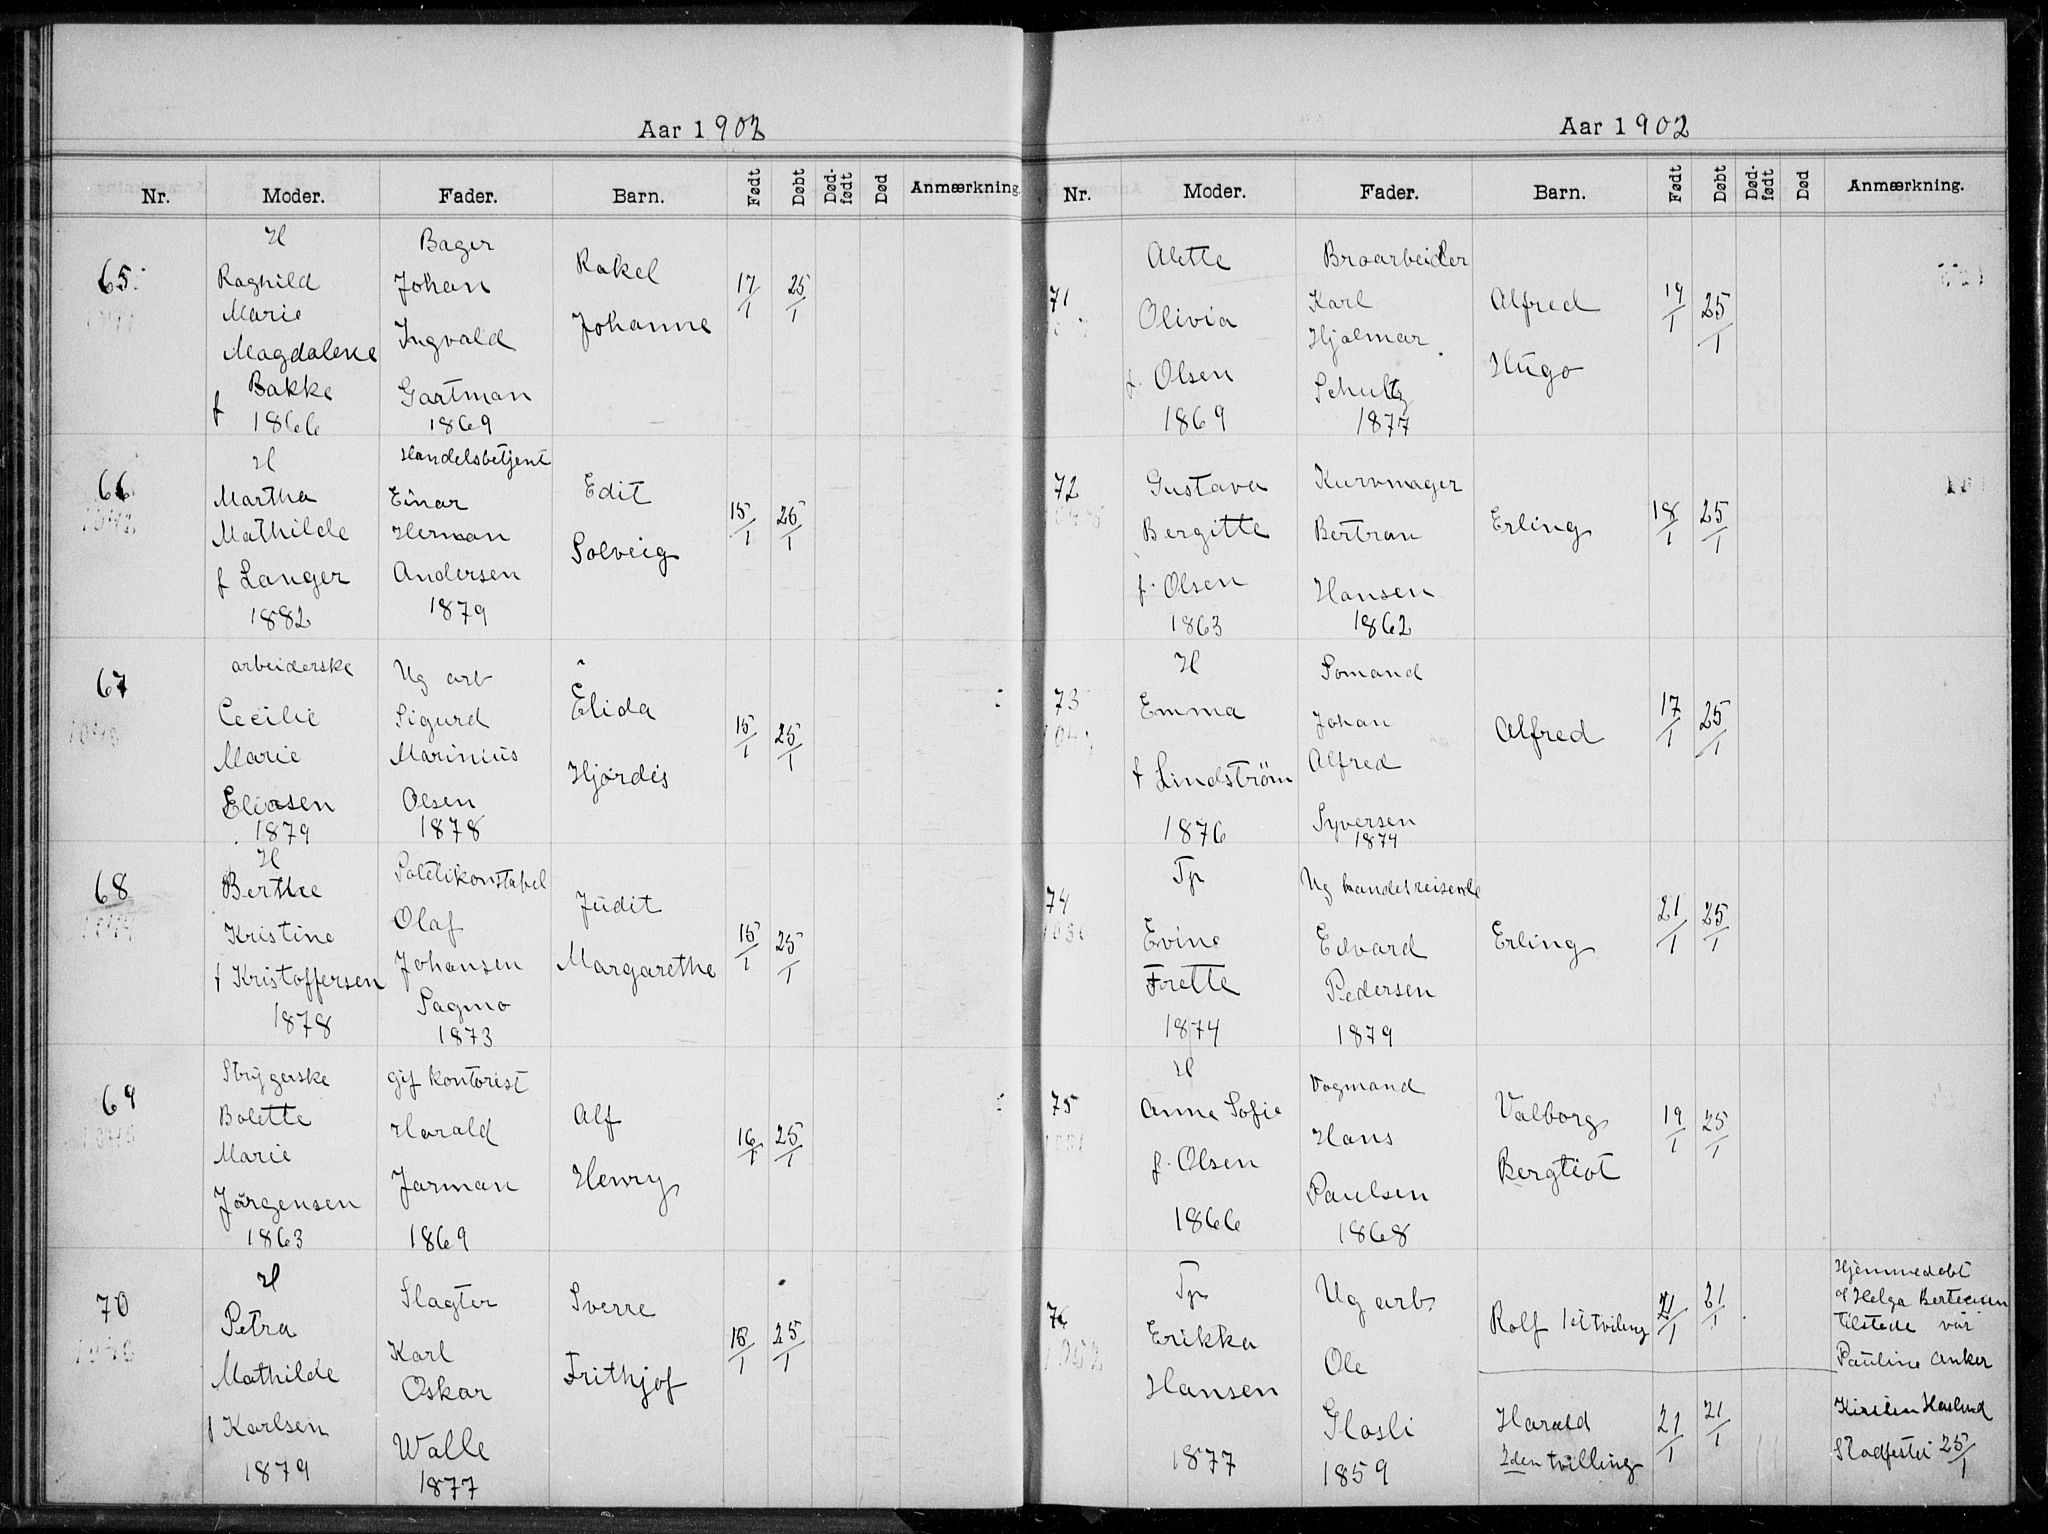 Aar 1902
Nr. Moder. Fader. Barn. Født Døbt Død-født Død Anmærkning.
65
H
Ragnild
Marie
Magdalene
f Bakke
1866
Bager
Johan
Ingvald
Gartman
1869
Rakel
Johanne
17/1 25/1
66
H
Martha
Mathilde
f Langer
1882
Handelsbetjent
Einar
Herman
Andersen
1879
Edit
Solveig
15/1 25/1
67
arbeiderske
Cecilie
Marie
Eliasen
1879
Ug arb
Sigurd
Marinius
Olsen
1878
Elida
Hjørdis
15/1 25/1
68
H
Berthe
Kristine
f Kristoffersen
1878
Politikonstabel
Olaf
Johansen
Sagmo
1873
Judit
Margarethe
15/1 25/1
69
Strygerske
Bolette
Marie
Jørgensen
1863
gif kontorist
Harald
Jarman
1869
Alf
Henry
16/1 25/1
70
H
Petra
Mathilde
f Karlsen
1879
Slagter
Karl
Oskar
Walle
1877
Sverre
Frithjof
15/1 25/1
Aar 1902
Nr. Moder. Fader. Barn. Født Døbt Død-født Død Anmærkning.
71
Alette
Olivia
f. Olsen
1869
Broarbeider
Karl
Hjalmar
Schultz
1877
Alfred
Hugo
19/1 25/1
72
Gustava
Bergitte
f. Olsen
1863
Kurvmager
Bertran
Hansen
1862
Erling
18/1 25/1
73
H
Emma
f Lindstrøm
1876
Sømand
Johan
Alfred
Syversen
1874
Alfred
17/1 25/1
74
Tp
Evine
Frette
1874
Ug handelsreisende
Edvard
Pedersen
1879
Erling
21/1 25/1
75
H
Anna Sofie
f. Olsen
1866
Vogmand
Hans
Paulsen
1868
Valborg
Bergliot
19/1 25/1
76
Tp
Erikka
Hansen
1877
Ug arb
Ole
Glosli
1859
Rolf 1st tvilling
21/1 21/1
Hjemmedøbt
af Helga Bertelsen
tilstede var
Pauline Anker
Harald
2den tvilling
21/1 21/1
Kirsten Haslund
Stadfestet 25/1